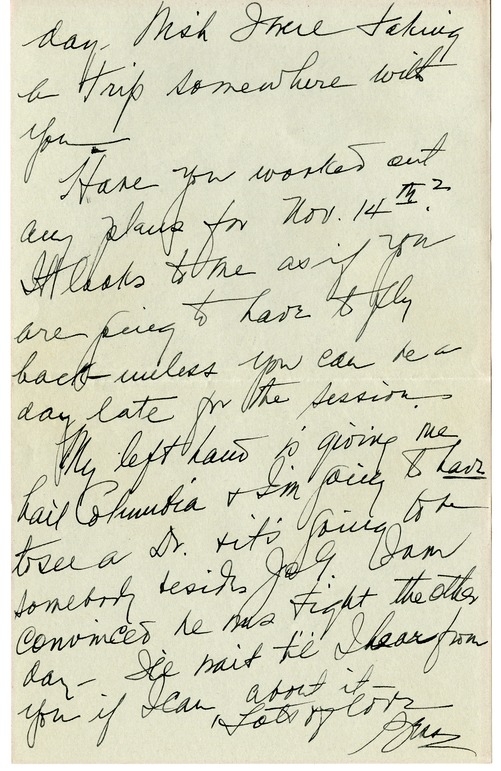 day. Wish I were taking
a trip somewhere with
you—
Have you worked out
any plans for Nov. 14th?
It looks to me as if you
are going to have to fly
back unless you can be a
day late for the session.
My left hand is giving me
hail Columbia & I'm going to have
to see a Dr. & it's going to be
somebody besides I am
convinced he was tight the other
day— I'll wait til I hear from
you if I can about it
Lots of love
Bess